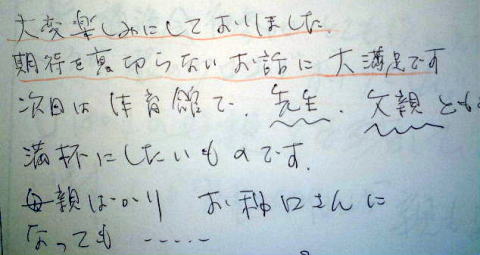 大変楽しみにしておりました。
期待を裏切らないお話に大満足です
次回は体育館で、先生、父親とも
満杯にしたいものです。
母親ばかり お利口さんに
なっても -----